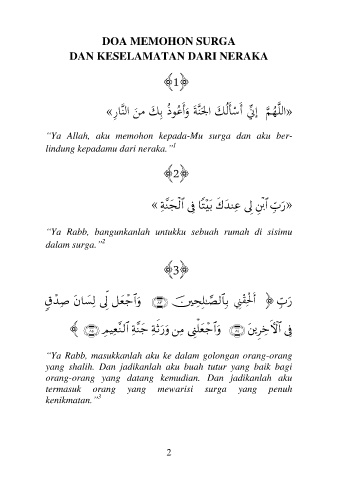 DOA MEMOHON SURGA
DAN KESELAMATAN DARI NERAKA
﴾1﴿
«اللَّهُمَّ إِنِّي أَسْأَلُكَ الْجَنَّةَ وَأَعُوذُ بِكَ مِنَ النَّارِ»
“Ya Allah, aku memohon kepada-Mu surga dan aku ber-
lindung kepadamu dari neraka.”1
﴾2﴿
«رَبِّ ٱبْنِ لِى عِندَكَ بَيْتًا فِى ٱلْجَنَّةِ»
“Ya Rabb, bangunkanlah untukku sebuah rumah di sisimu
dalam surga.”2
﴾3﴿
رَبِّ ﴿ أَلْحِقْنِى بِٱلصَّـٰلِحِينَ ۝ وَٱجْعَل لِّى لِسَانَ صِدْقٍ
فِى ٱلْـَٔاخِرِينَ ۝ وَٱجْعَلْنِى مِن وَرَثَةِ جَنَّةِ ٱلنَّعِيمِ ۝ ﴾
“Ya Rabb, masukkanlah aku ke dalam golongan orang-orang
yang shalih. Dan jadikanlah aku buah tutur yang baik bagi
orang-orang yang datang kemudian. Dan jadikanlah aku
termasuk orang yang mewarisi surga yang penuh
kenikmatan.”3
2